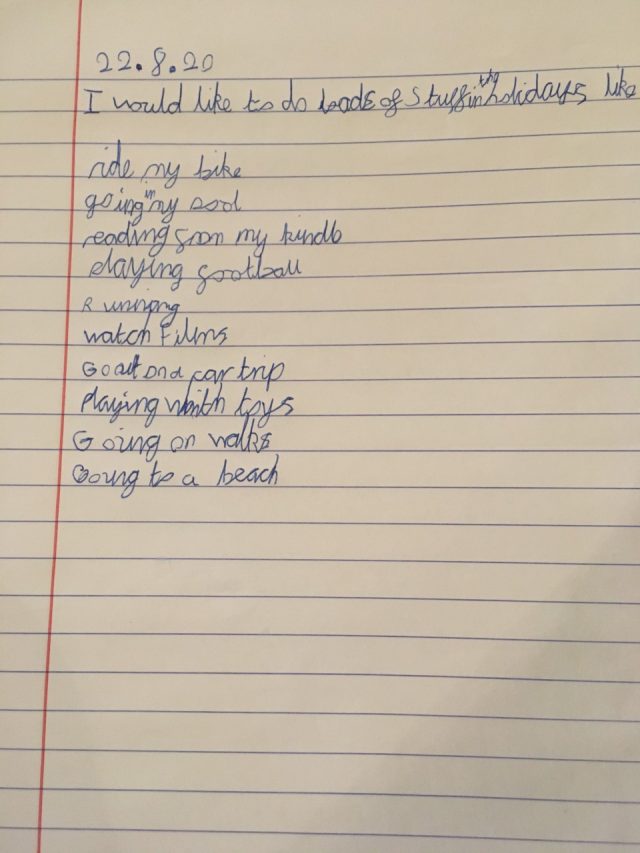 22.8.20
I would like to do loads of Stuff in the holidays like
ride my bike
going in my pool
reading from my kindle
playing football
Running
watch Films
Go out on a car trip
Playing with toys
Going on walks
Going to a beach